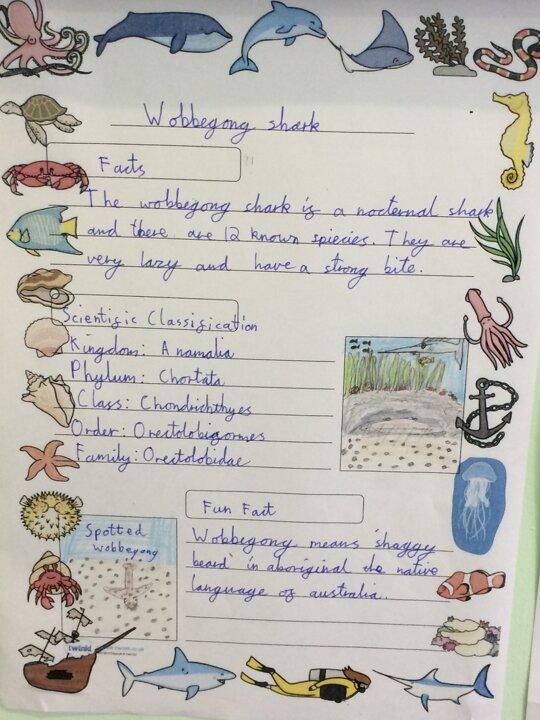 Wobbegong shark
Facts
The wobbegong shark is a nocternal shark
and there are 12 known spiecies. They are
very lazy and have a strong bite.
Scientific Classification
Kingdom: Anamalia
Phylum: Chortata
Class: Chondrichthyes
Order: Orectolobigormes
Family: Orectolobidae
Fun Fact
Wobbegong means 'shaggy
beard' in aboriginal the native
language of australia.
Spotted
wobbegong
twinkl